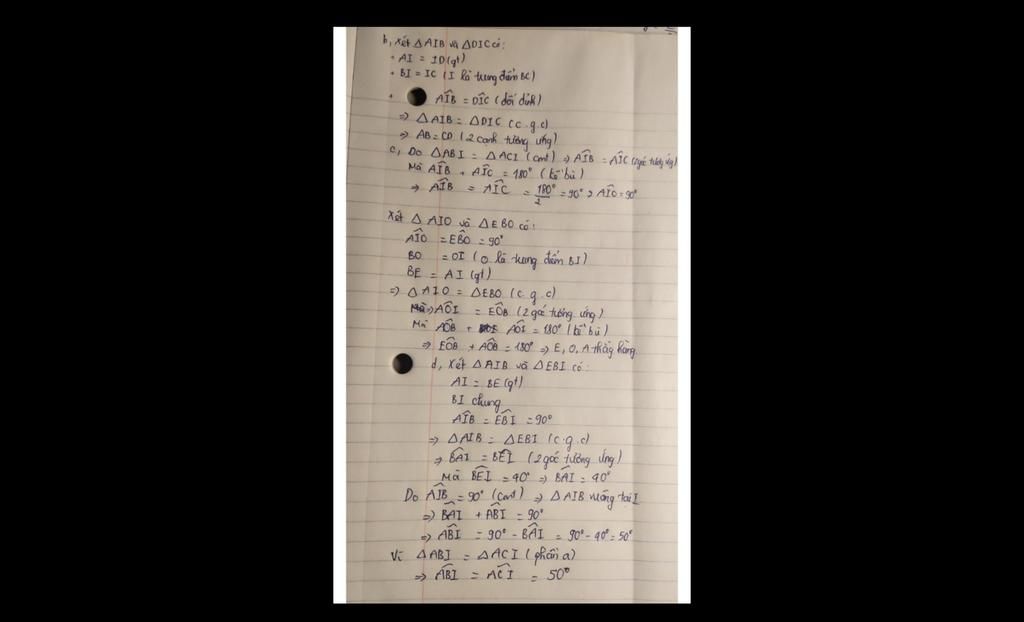 b, Xét △AIB và △DIC có:
+ AI = ID (gt)
+ BI = IC (I là trung điểm BC)
+ AÎB = DÎC (đối đỉnh)
=> △AIB = △DIC (c.g.c)
=> AB = CD (2 cạnh tương ứng)
c, Do △ABI = △ACI (cmt) => AÎB = AÎC (2 góc tương ứng)
Mà AÎB + AÎC = 180° (kề bù)
=> AÎB = AÎC = 180°/2 = 90° => AÎO = 90°
Xét △AIO và △EBO có:
AÎO = EB̂O = 90°
BO = OI (O là trung điểm BI)
BE = AI (gt)
=> △AIO = △EBO (c.g.c)
=> AÔI = EÔB (2 góc tương ứng)
Mà AÔB + AÔI = 180° (kề bù)
=> EÔB + AÔB = 180° => E, O, A thẳng hàng
d, Xét △AIB và △EBI có:
AI = BE (gt)
BI chung
AÎB = EB̂I = 90°
=> △AIB = △EBI (c.g.c)
=> BÂI = BÊI (2 góc tương ứng)
Mà BÊI = 40° => BÂI = 40°
Do AÎB = 90° (cmt) => △AIB vuông tại I
=> BÂI + AB̂I = 90°
=> AB̂I = 90° - BÂI = 90° - 40° = 50°
Vì △ABI = △ACI (phần a)
=> AB̂I = AĈI = 50°